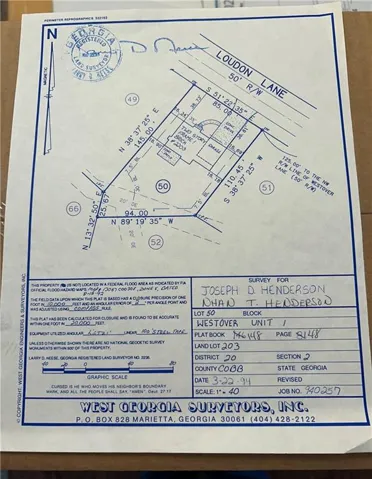 N
MAGNETIC
GEORGIA
REGISTERED
LAND SURVEYOR
LARRY D. NEESE
LOUDON LANE
50' R/W
S 51°22'35" E
85.00
49
N 38°37'25" E
145.00
50
51
S 38°37'25" W
110.45
125.00' TO THE NW
R/W LINE OF WESTOVER
LANE (50' R/W)
66
25.67
N 13°32'50" E
94.00
N 89°19'35" W
52
THIS PROPERTY IS NOT LOCATED IN A FEDERAL FLOOD AREA AS INDICATED BY FIA
OFFICIAL FLOOD HAZARD MAPS.
THE FIELD DATA UPON WHICH THIS PLAT IS BASED HAS A CLOSURE PRECISION OF ONE
FOOT IN 10,000 FEET AND AN ANGULAR ERROR OF PER ANGLE POINT AND
WAS ADJUSTED USING COMPASS RULE
THIS PLAT HAS BEEN CALCULATED FOR CLOSURE AND IS FOUND TO BE ACCURATE
WITHIN ONE FOOT IN 20,000 FEET.
EQUIPMENT UTILIZED: ANGULAR LINEAR 100' STEEL TAPE
UNLESS OTHERWISE SHOWN THERE ARE NO NATIONAL GEODETIC SURVEY
MONUMENTS WITHIN 500' OF THIS PROPERTY.
LARRY D. NEESE, GEORGIA REGISTERED LAND SURVEYOR NO. 2235
GRAPHIC SCALE
CURSED IS HE WHO MOVES HIS NEIGHBOR'S BOUNDARY
MARK, AND ALL THE PEOPLE SHALL SAY, "AMEN". Deut. 27:17
SURVEY FOR
JOSEPH D. HENDERSON
NHAN T. HENDERSON
LOT 50 BLOCK
WESTOVER UNIT 1
PLAT BOOK 148 PAGE
LAND LOT 203
DISTRICT 20 SECTION 2
COUNTY COBB STATE GEORGIA
DATE 3-22-94 REVISED
SCALE: 1" = 40 JOB NO. 940257
WEST GEORGIA SURVEYORS, INC.
P.O. BOX 828 MARIETTA, GEORGIA 30061 (404) 428-2122